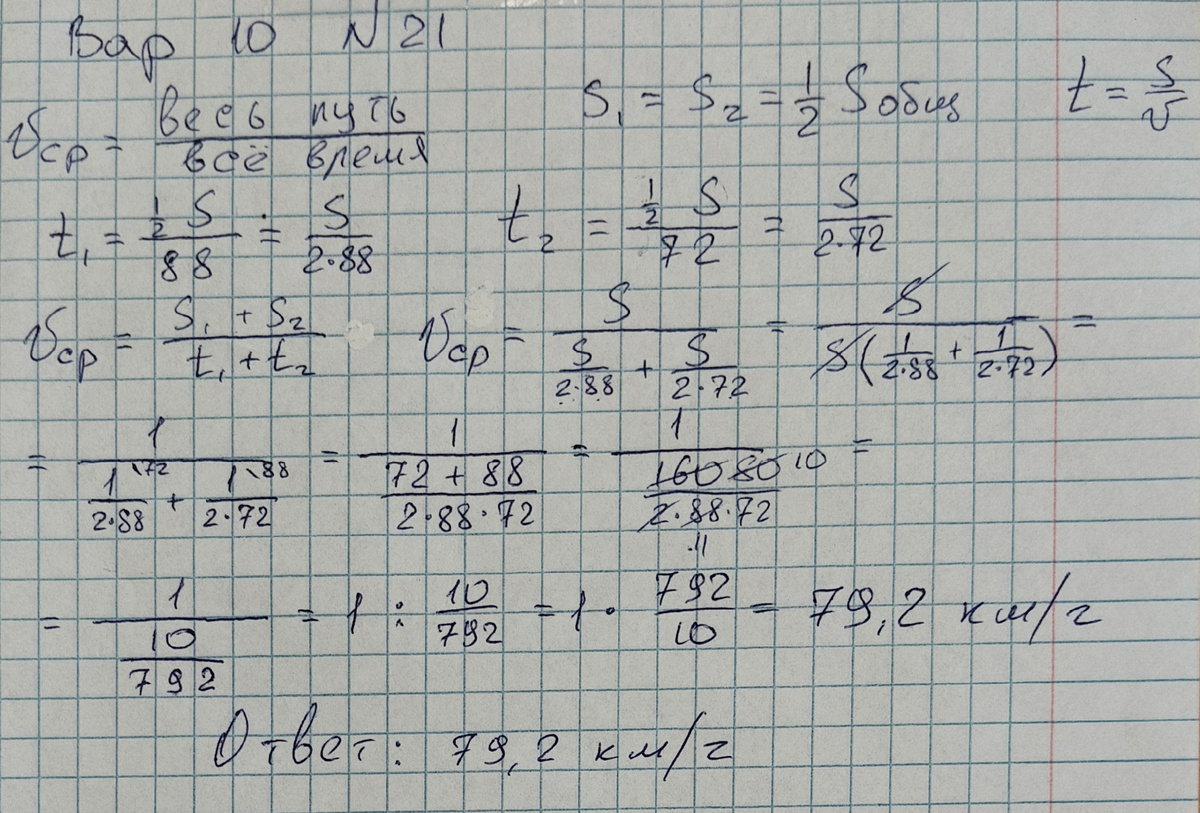 Вар 10 N 21
Vср = весь путь / всё время S₁ = S₂ = 1/2 Sобщ t = S/v
t₁ = (1/2 S)/88 = S/(2·88) t₂ = (1/2 S)/72 = S/(2·72)
Vср = (S₁ + S₂)/(t₁ + t₂) Vср = S/(S/(2·88) + S/(2·72)) = S/(S(1/(2·88) + 1/(2·72))) =
= 1/(1\72/(2·88) + 1\88/(2·72)) = 1/((72 + 88)/(2·88·72)) = 1/(160 80 10/(2·88·72)) =
11
= 1/(10/792) = 1 : 10/792 = 1 · 792/10 = 79,2 км/г
Ответ: 79,2 км/г